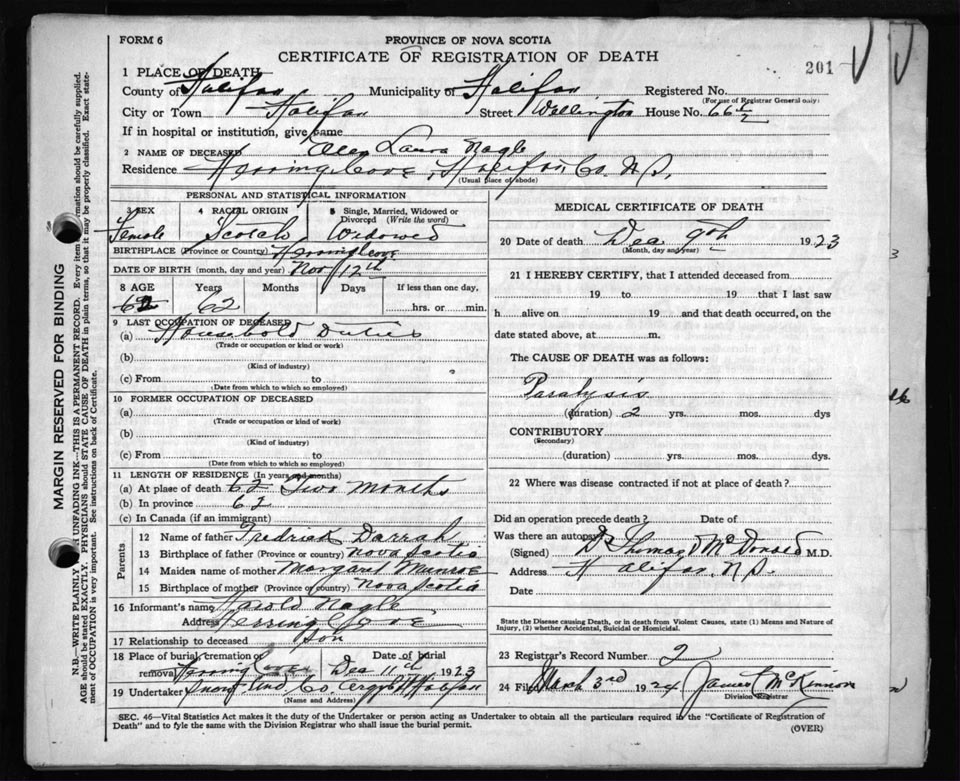 FORM 6
PROVINCE OF NOVA SCOTIA
CERTIFICATE OF REGISTRATION OF DEATH
201
1 PLACE OF DEATH
County of Halifax Municipality of Halifax Registered No.
(For use of Registrar General only)
City or Town Halifax Street Wellington House No. 66 1/2
If in hospital or institution, give name
2 NAME OF DECEASED Laura Nagle
Residence Herring Cove, Halifax Co. N.S.
(Usual place of abode)
PERSONAL AND STATISTICAL INFORMATION
3 SEX 4 RACIAL ORIGIN 5 Single, Married, Widowed or Divorced (Write the word)
Female Scotch Widowed
BIRTHPLACE (Province or Country) Herring Cove
DATE OF BIRTH (month, day and year) Nov 12th
8 AGE Years Months Days If less than one day,
62 62 hrs. or min.
9 LAST OCCUPATION OF DECEASED
(a) Household Duties
(Trade or occupation or kind or work)
(b)
(Kind of industry)
(c) From to
(Date from which to which so employed)
10 FORMER OCCUPATION OF DECEASED
(a)
(Trade or occupation or kind of work)
(b)
(Kind of industry)
(c) From to
(Date from which to which so employed)
11 LENGTH OF RESIDENCE (In years and months)
(a) At place of death 62 Two Months
(b) In province 62
(c) In Canada (if an immigrant)
Parents
12 Name of father Fredrick Darrah
13 Birthplace of father (Province or country) Nova Scotia
14 Maiden name of mother Margaret Munroe
15 Birthplace of mother (Province or country) Nova Scotia
16 Informant's name Harold Nagle
Address Herring Cove
17 Relationship to deceased Son
18 Place of burial, cremation or removal Herring Cove Date of burial Dec 11th 1923
19 Undertaker Snow and Co Argyle Halifax
(Name and Address)
MEDICAL CERTIFICATE OF DEATH
20 Date of death Dec 9th 1923
(Month, day and year)
21 I HEREBY CERTIFY, that I attended deceased from
19 to 19 that I last saw
h alive on 19 and that death occurred, on the
date stated above, at m.
The CAUSE OF DEATH was as follows:
Paralysis
(duration) 2 yrs. mos. dys
CONTRIBUTORY
(Secondary)
(duration) yrs. mos. dys.
22 Where was disease contracted if not at place of death?
Did an operation precede death? Date of
Was there an autopsy?
(Signed) Dr Thomas McDonald M.D.
Address Halifax, N.S.
Date
State the Disease causing Death, or in death from Violent Causes, state (1) Means and Nature of Injury, (2) whether Accidental, Suicidal or Homicidal.
23 Registrar's Record Number 2
24 Filed March 3rd 1924 James McKinnon
Division Registrar
SEC. 46—Vital Statistics Act makes it the duty of the Undertaker or person acting as Undertaker to obtain all the particulars required in the "Certificate of Registration of
Death" and to file the same with the Division Registrar who shall issue the burial permit.
(OVER)
MARGIN RESERVED FOR BINDING